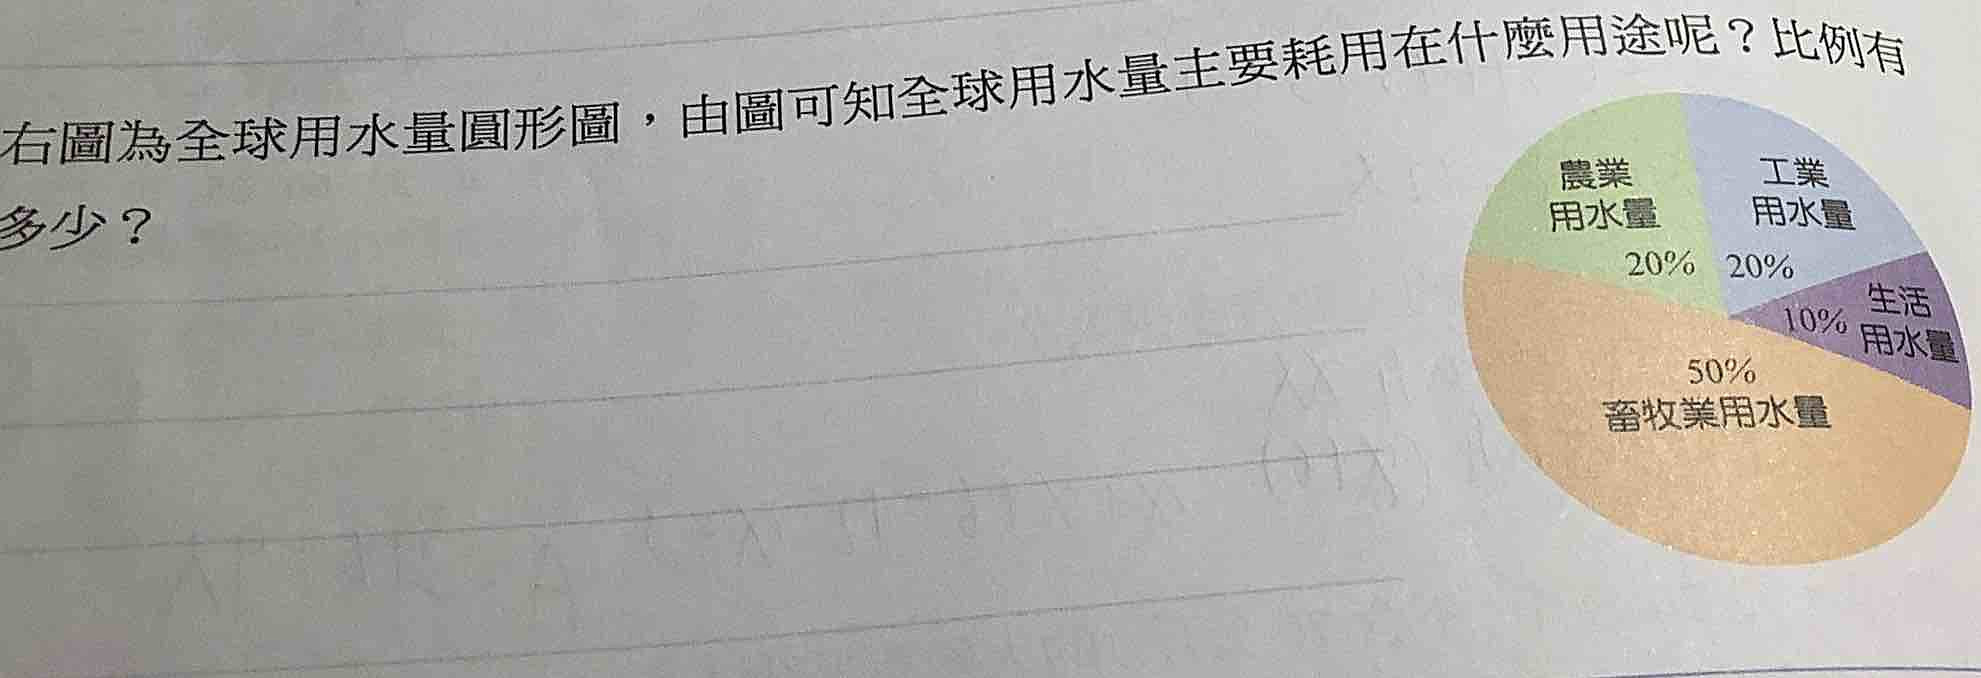 右圖為全球用水量圓形圖，由圖可知全球用水量主要耗用在什麼用途呢？比例有
多少？
農業
用水量
20%
工業
用水量
20%
生活
用水量
10%
50%
畜牧業用水量